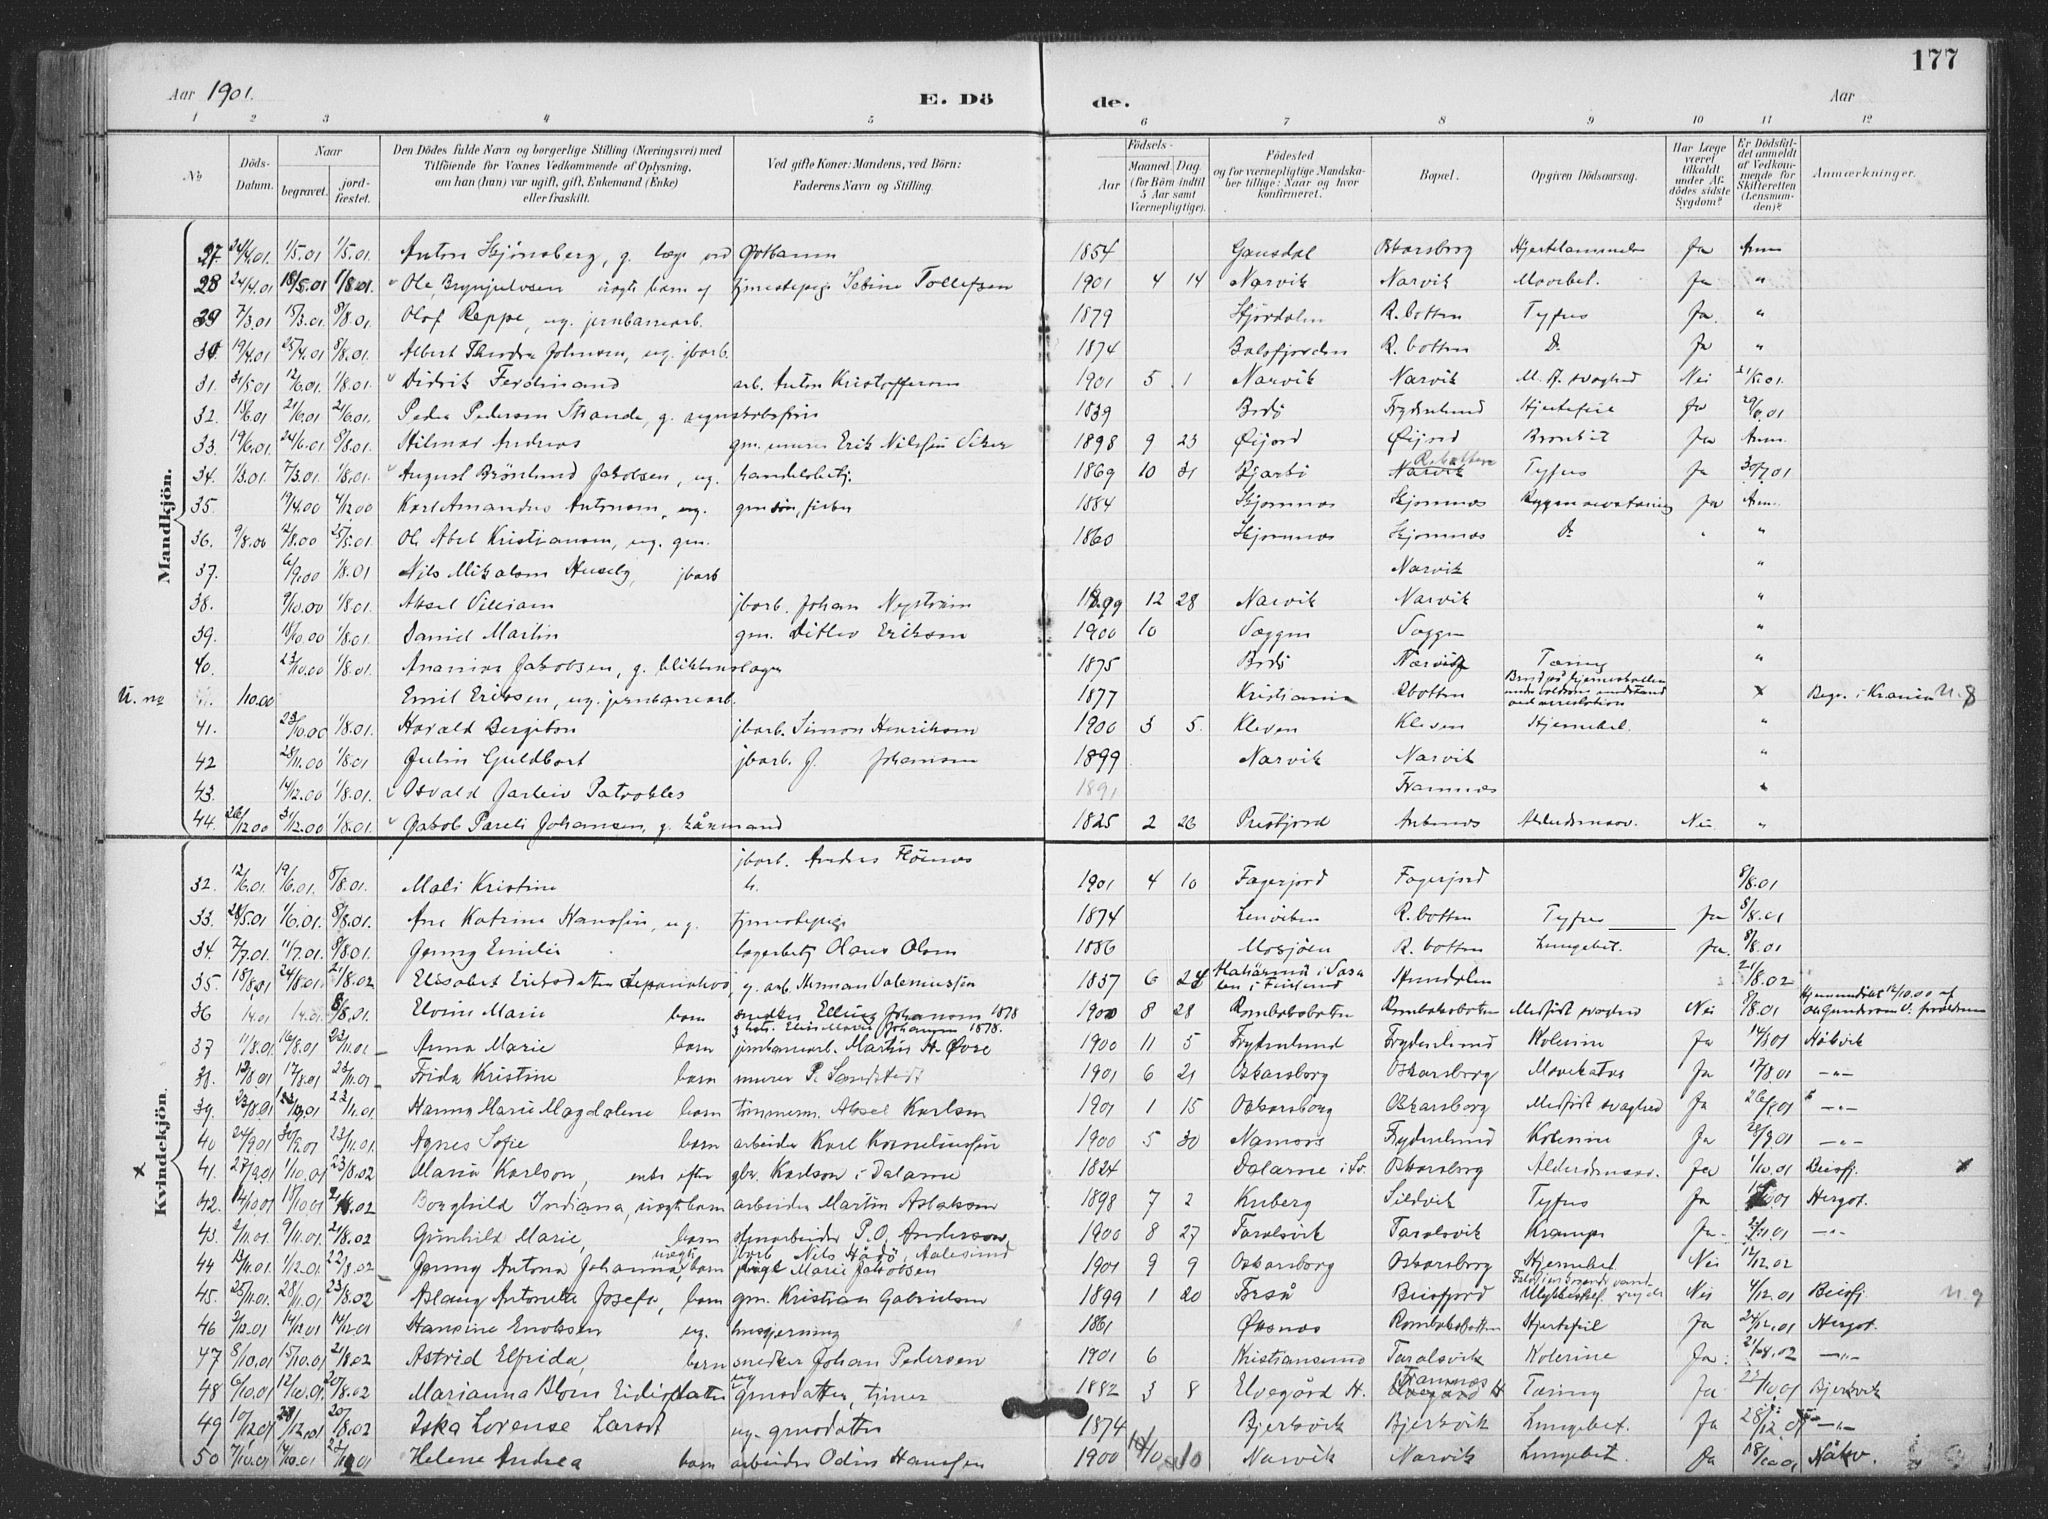 177
Aar 1901.
E. Dö de.
Aar
1 2 3 4 5 6 7 8 9 10 11 12
No
Döds-Datum.
Naar
begravet.
jord-fæstet.
Den Dödes fulde Navn og borgerlige Stilling (Næringsvei) med
Tilföiende for Voxnes Vedkommende af Oplysning,
om han (hun) var ugift, gift, Enkemand (Enke)
eller fraskilt.
Ved gifte Koner: Mandens, ved Börn:
Faderens Navn og Stilling.
Födsels-
Aar
Maaned. Dag.
(for Börn indtil
5 Aar samt
Værnepligtige).
Födested
og for værnepligtige Mandska-
ber tillige: Naar og hvor
konfirmeret.
Bopæl.
Opgiven Dödsaarsag.
Har Læge
været
tilkaldt
under Af-
dödes sidste
Sygdom?
Er Dödsfal-
det anmeldt
af Vedkom-
mende for
Skifteretten
(Lensman-
den)?
Anmærkninger.
Mandkjön.
27 24/4.01 1/5.01 1/5.01 Anton Skjönsberg, g. læge ved Ofotbanen 1854 Gausdal Oskarsborg Hjertelammelse Ja Anm
28 24/4.01 18/5.01 1/8.01. Ole Brynjulvsen uægte barn af tjenestepige Sebine Tollefsen 1901 4 14 Narvik Narvik Mavebet. Ja "
29 7/3.01 15/3.01. 8/8.01. Olof Reppe, ug. jernbanearb. 1879 Stjørdalen R.botten Tyfus Ja. "
30 19/4.01 25/4.01 8/8.01. Albert Thodor Johnsen, ug. jbarb. 1874 Balsfjorden R. botten Do Ja "
31. 31/5.01 12/6.01. 1/8.01. Didrik Ferdinand arb. Anton Kristoffersen 1901 5 1 Narvik Narvik M. f. svaghed Nei
32. 15/6.01 21/6.01 21/6.01. Peder Pedersen Strande, g. regnskabsfører 1839 Bodö Frydenlund Hjertefeil Ja 29/6.01
33. 19/6.01. 24/6.01 8/8.01. Hilmar Andreas gm. murer Erik Nilssen 1898 9 23 Øijord Øijord Bronkit Ja Anm.
34. 1/3.01. 7/3.01 1/8.01. August Brönlund Jakobsen, ug. handelsbetj. 1869 10 31 Narvik R.botten Tyfus Ja 30/7.01
35. 19/4.00 4/12.00 Karl Amandus Antonsen, ug. gmsøn, fisker 1884 Skjomnæs Skjomnes Ja Anm.
36. 9/8.00 12/8.00 25/5.01. Ole Abel Kristiansen, ug. gm. 1860 Skjomnæs Skjomnæs Do "
37. 6/9.00 1/8.01 Nils Mikalsen Huseby, jbarb Narvik "
38. 9/10.00 1/8.01. Aksel Villiam jbarb. Johan Nyström 1899 12 28 Narvik Narvik "
39. 18/10.00 1/8.01. Daniel Martin gm. Ditlev Eriksen 1900 10 Vaggen Vaggen "
40. 23/10.00 1/8.01. Ananias Jakobsen, g. blikkenslager 1875 Bodö Narvik Tæring "
U. no /10.00 Emil Eriksen, ug. jernbanearb. 1877 Kristiania Rbotten x Begr. i Kranien N. 8
41. 23/10.00 1/8.01. Harald Bergiton jbarb. Simon Henriksen 1900 3 5. Kleven Kleven Hjernebet. "
42 28/11.00 1/8.01 Julin Guldbort jbarb. J. Johansen 1899 Narvik Narvik "
43. 14/12.00 1/8.01. Osvald Jarleiv Patrokles 1891 Framnes "
44. 26/12.00 31/12.00 1/8.01. Jakob Pareli Johansen, g. kårmand 1825 2 26 Prestjord Ankenes Alderdomssv. Nei "
Kvindekjön.
jbarb. Anders Flönes
32. 12/6.01. 19/6.01. 8/8.01. Mali Kristine h. 1901 4 10 Fagerjord Fagerjord 8/8.01
33. 28/5.01 1/6.01. 8/8.01. Ane Katrine Hanssen, ug. tjenestepige 1874 Lenviken R.botten Tyfus Ja 8/8.01
34. 7/7.01. 11/7.01 8/8.01. Jenny Emilie lagerbetj Olaus Olsen 1886 Mosjöen R. botten Lungebet. Ja. 8/8.01
35. 18/8.01 24/8.01. 21/8.02 Elisabet Eriksdatter g. arb Herman Valeniussen 1837 6 24 Hundalen 21/8.02
36 14.01 14.01 8/8.01. Elvine Marie barn snedker Elling Johansen 1878 1900 8 28 Rombaksbotten Rombaksbotten Medfödt svaghed Nei 8/8.01 Hjemmedöbt 14/10.00 af
g. hust. Elen Marie Johansen 1878.
37. 11/8.01. 16/8.01 23/11.01 Anna Marie barn jernbanearb. Martin H. Øvre 1900 11 5 Frydenlund Frydenlund Kolerine Ja 14/8.01 Håkvik
38. 12/8.01 17/8.01 23/11.01 Frida Kristine barn murer P. Sandstedt 1901 6 21 Oskarsborg Oskarsborg Mavekatar Ja 17/8.01 -"-
39. 23/8.01 23/11.01 Hanny Marie Magdalene barn tömmerm. Aksel Karlsen 1901 1 15 Oskarsborg Oskarsborg Medfödt svaghed Ja 26/8.01 -"-
40 24/9.01 30/9.01 23/11.01. Agnes Sofie barn arbeider Karl Korneliussen 1900 5 30 Namsos Frydenlund Kolerine Ja 28/9.01 -"-
x 41. 27/9.01 1/10.01 23/8.02 Maria Karlson, enke efter gbr. Karlson i Dalarne 1824 Dalarne i Sv. Oskarsborg Alderdomssv. Ja 1/10.01 Beisfj. x
42. 14/10.01 18/10.01 21/8.02 Borghild Indiana, uægte barn arbeider Martin Aslaksen 1898 7 2 Kuberg Sildvik Tyfus Ja Hergot.
43. 2/11.01. 9/11.01. 21/8.02 Gunhild Marie, barn stenarbeider P. O. Anderson. 1900 8 27 Taraldsvik Taralsvik Krampe Ja. -"-
44 13/11.01. 1/12.01. 22/8.02 Jenny Antona Johanna, uægte barn jbarb Nils Hådö, Aalesund pige Marie Jakobsen 1901 9 9 Oskarsborg Oskarsborg Hjernebet. Nei 12/12.02
45. 25/11.01. 28/11.01 23/8.02 Aslaug Antonette Josefa, barn gm. Kristian Gabrielsen 1899 1 20 Forså Beisfjord Ulykkestilf. Nei 4/12.01 Beisfj. N. 9
46 2/12.01 14/12.01 14/12.01 Hansine Enoksen ug. husgjerning 1861 Øksnes Rombaksbotten Hjertefeil Ja 24/12.01 Hergot.
47 8/10.01 15/10.01 21/8.02 Astrid Elfrida, barn snedker Johan Pedersen 1901 6 Kristiansund Taralsvik Kolerine Ja. 21/8.02 -"-
48 6/10.01 12/10.01. 20/8.02 Marianna Blom ug gmsdatter, tjener 1882 3 8 Elvegård H. Framnes Elvegård H Tæring Ja 22/10.01 Bjerkvik
49 10/12.01 28/12.01 20/8.02 Iska Lorense Larsdt ug. gmsdatter 1874 Bjerkvik Bjerkvik Lungebet. Ja 28/12.01 -"-
50 7/10.01 14/10.01 Helene Andrea barn arbeider Odin Hanssen 1900 10 10 Narvik Narvik Lungebet. Ja 18/10.01 Håkv.